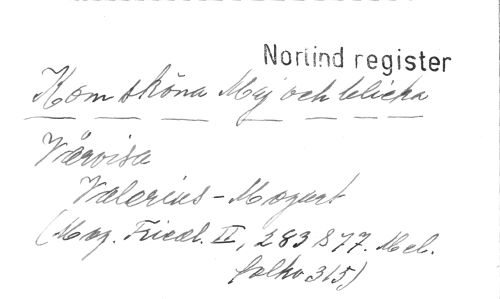 Norlind register
Kom sköna Maj och blicka
Vårvisa
Valerius - Mozart
(Maz. Frical. IV, 283 S 77. Mel.
folko 315)